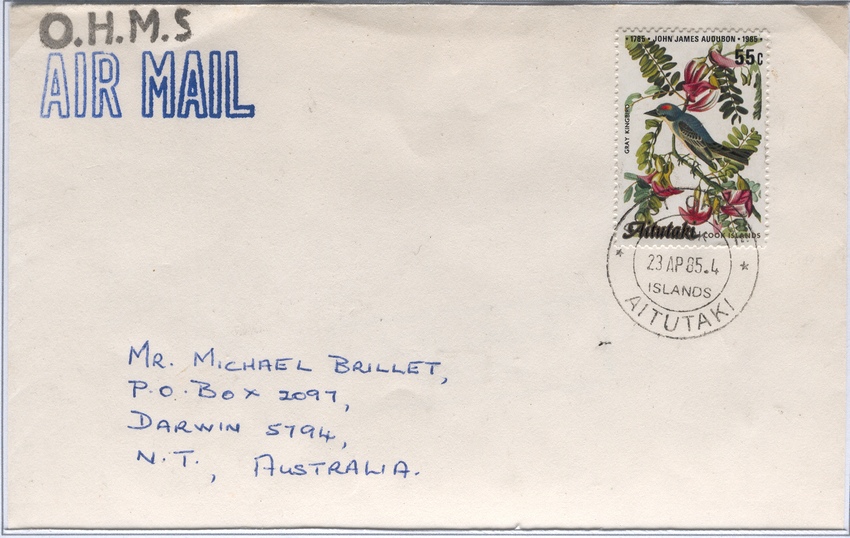 O.H.M.S
AIR MAIL
• 1785 • JOHN JAMES AUDUBON • 1985 •
55c
GRAY KINGBIRD
Aitutaki COOK ISLANDS
23 AP 85.4
ISLANDS
* AITUTAKI *
MR. MICHAEL BRILLET,
P.O. BOX 2097,
DARWIN 5794,
N.T., AUSTRALIA.